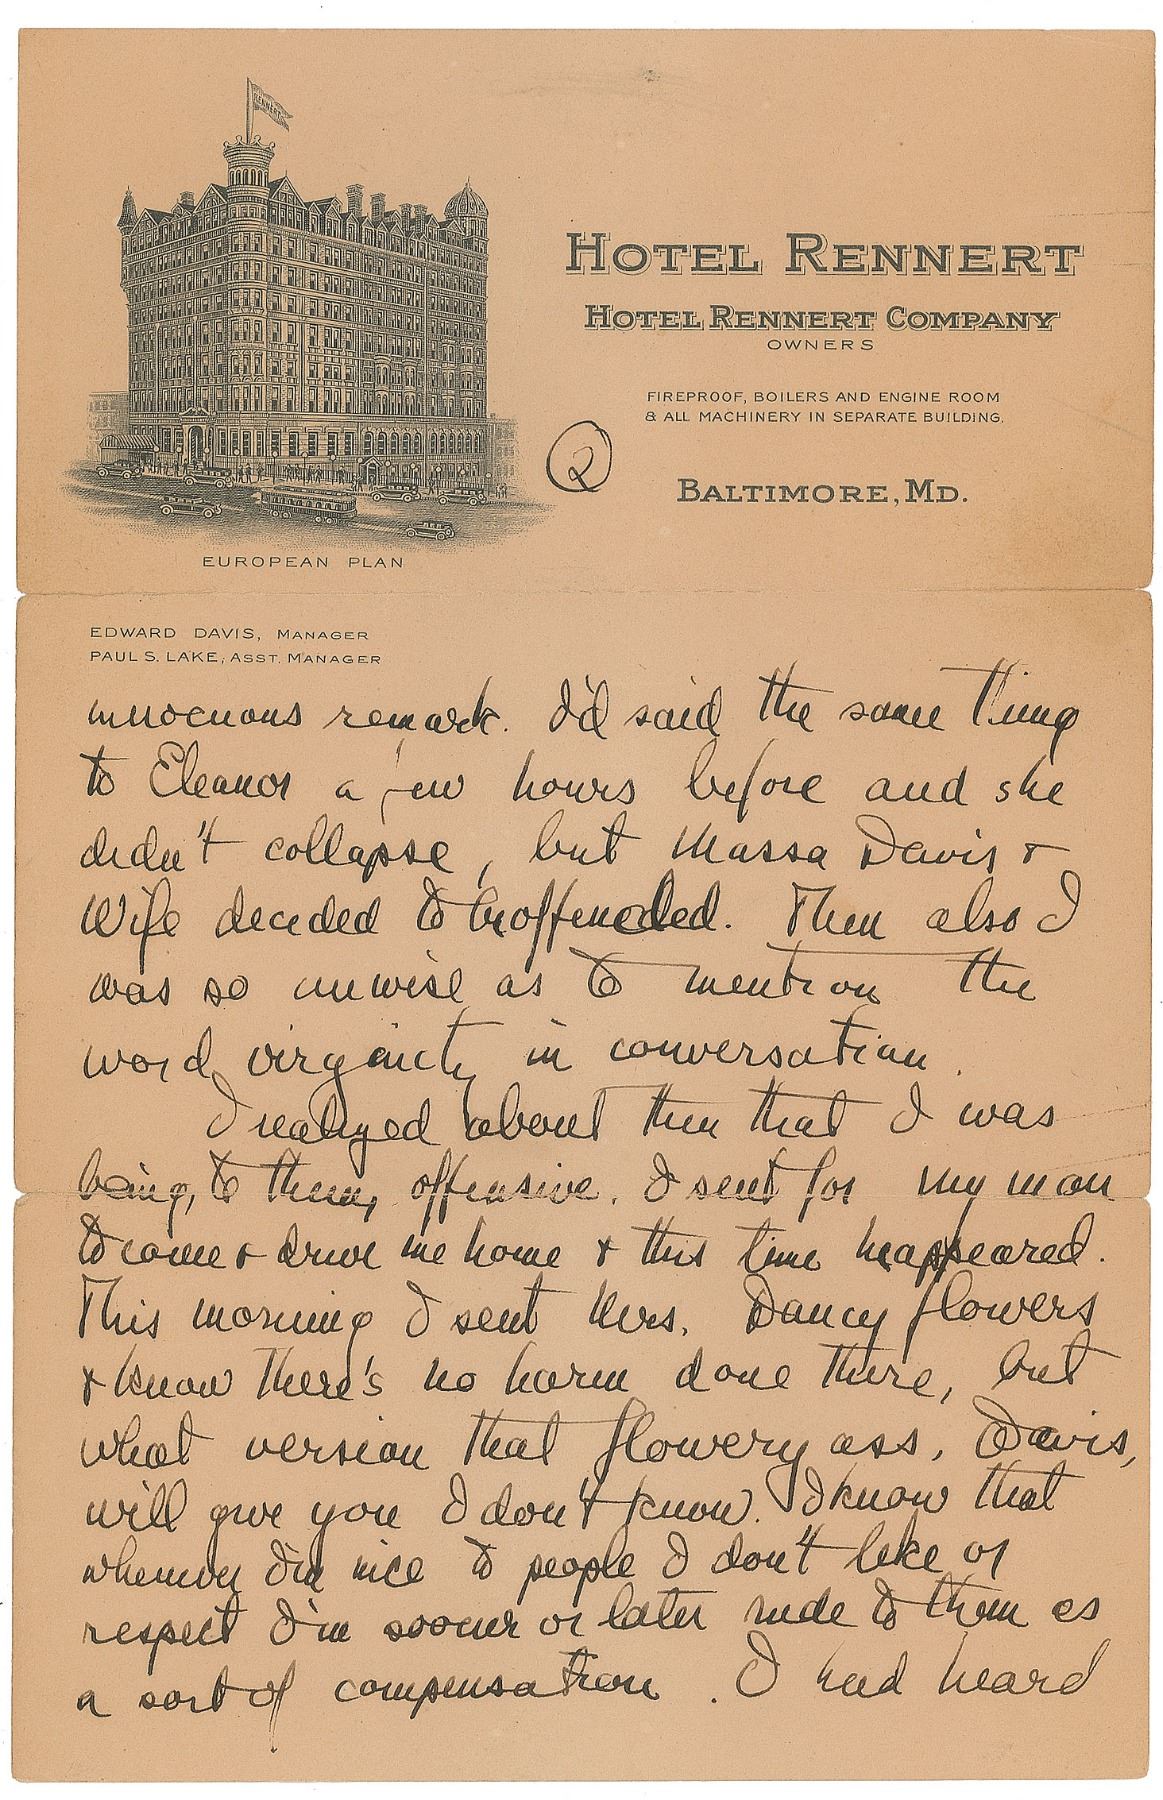 RENNERT
HOTEL RENNERT
HOTEL RENNERT COMPANY
OWNERS
FIREPROOF, BOILERS AND ENGINE ROOM
& ALL MACHINERY IN SEPARATE BUILDING.
2
BALTIMORE, MD.
EUROPEAN PLAN
EDWARD DAVIS, MANAGER
PAUL S. LAKE, ASST. MANAGER
innocuous remark. I'd said the same thing
to Eleanor a few hours before and she
didn't collapse, but Massa Davis &
Wife decided to be offended. Then also I
was so unwise as to mention the
word virginity in conversation.
I realized about then that I was
being, to them, offensive. I sent for my man
to come & drive me home & this time he appeared.
This morning I sent Mrs. Dancy flowers
& know there's no harm done there, but
what version that flowery ass, Davis,
will give you I don't know. I know that
whenever I'm nice to people I don't like or
respect I'm sooner or later rude to them as
a sort of compensation. I had heard